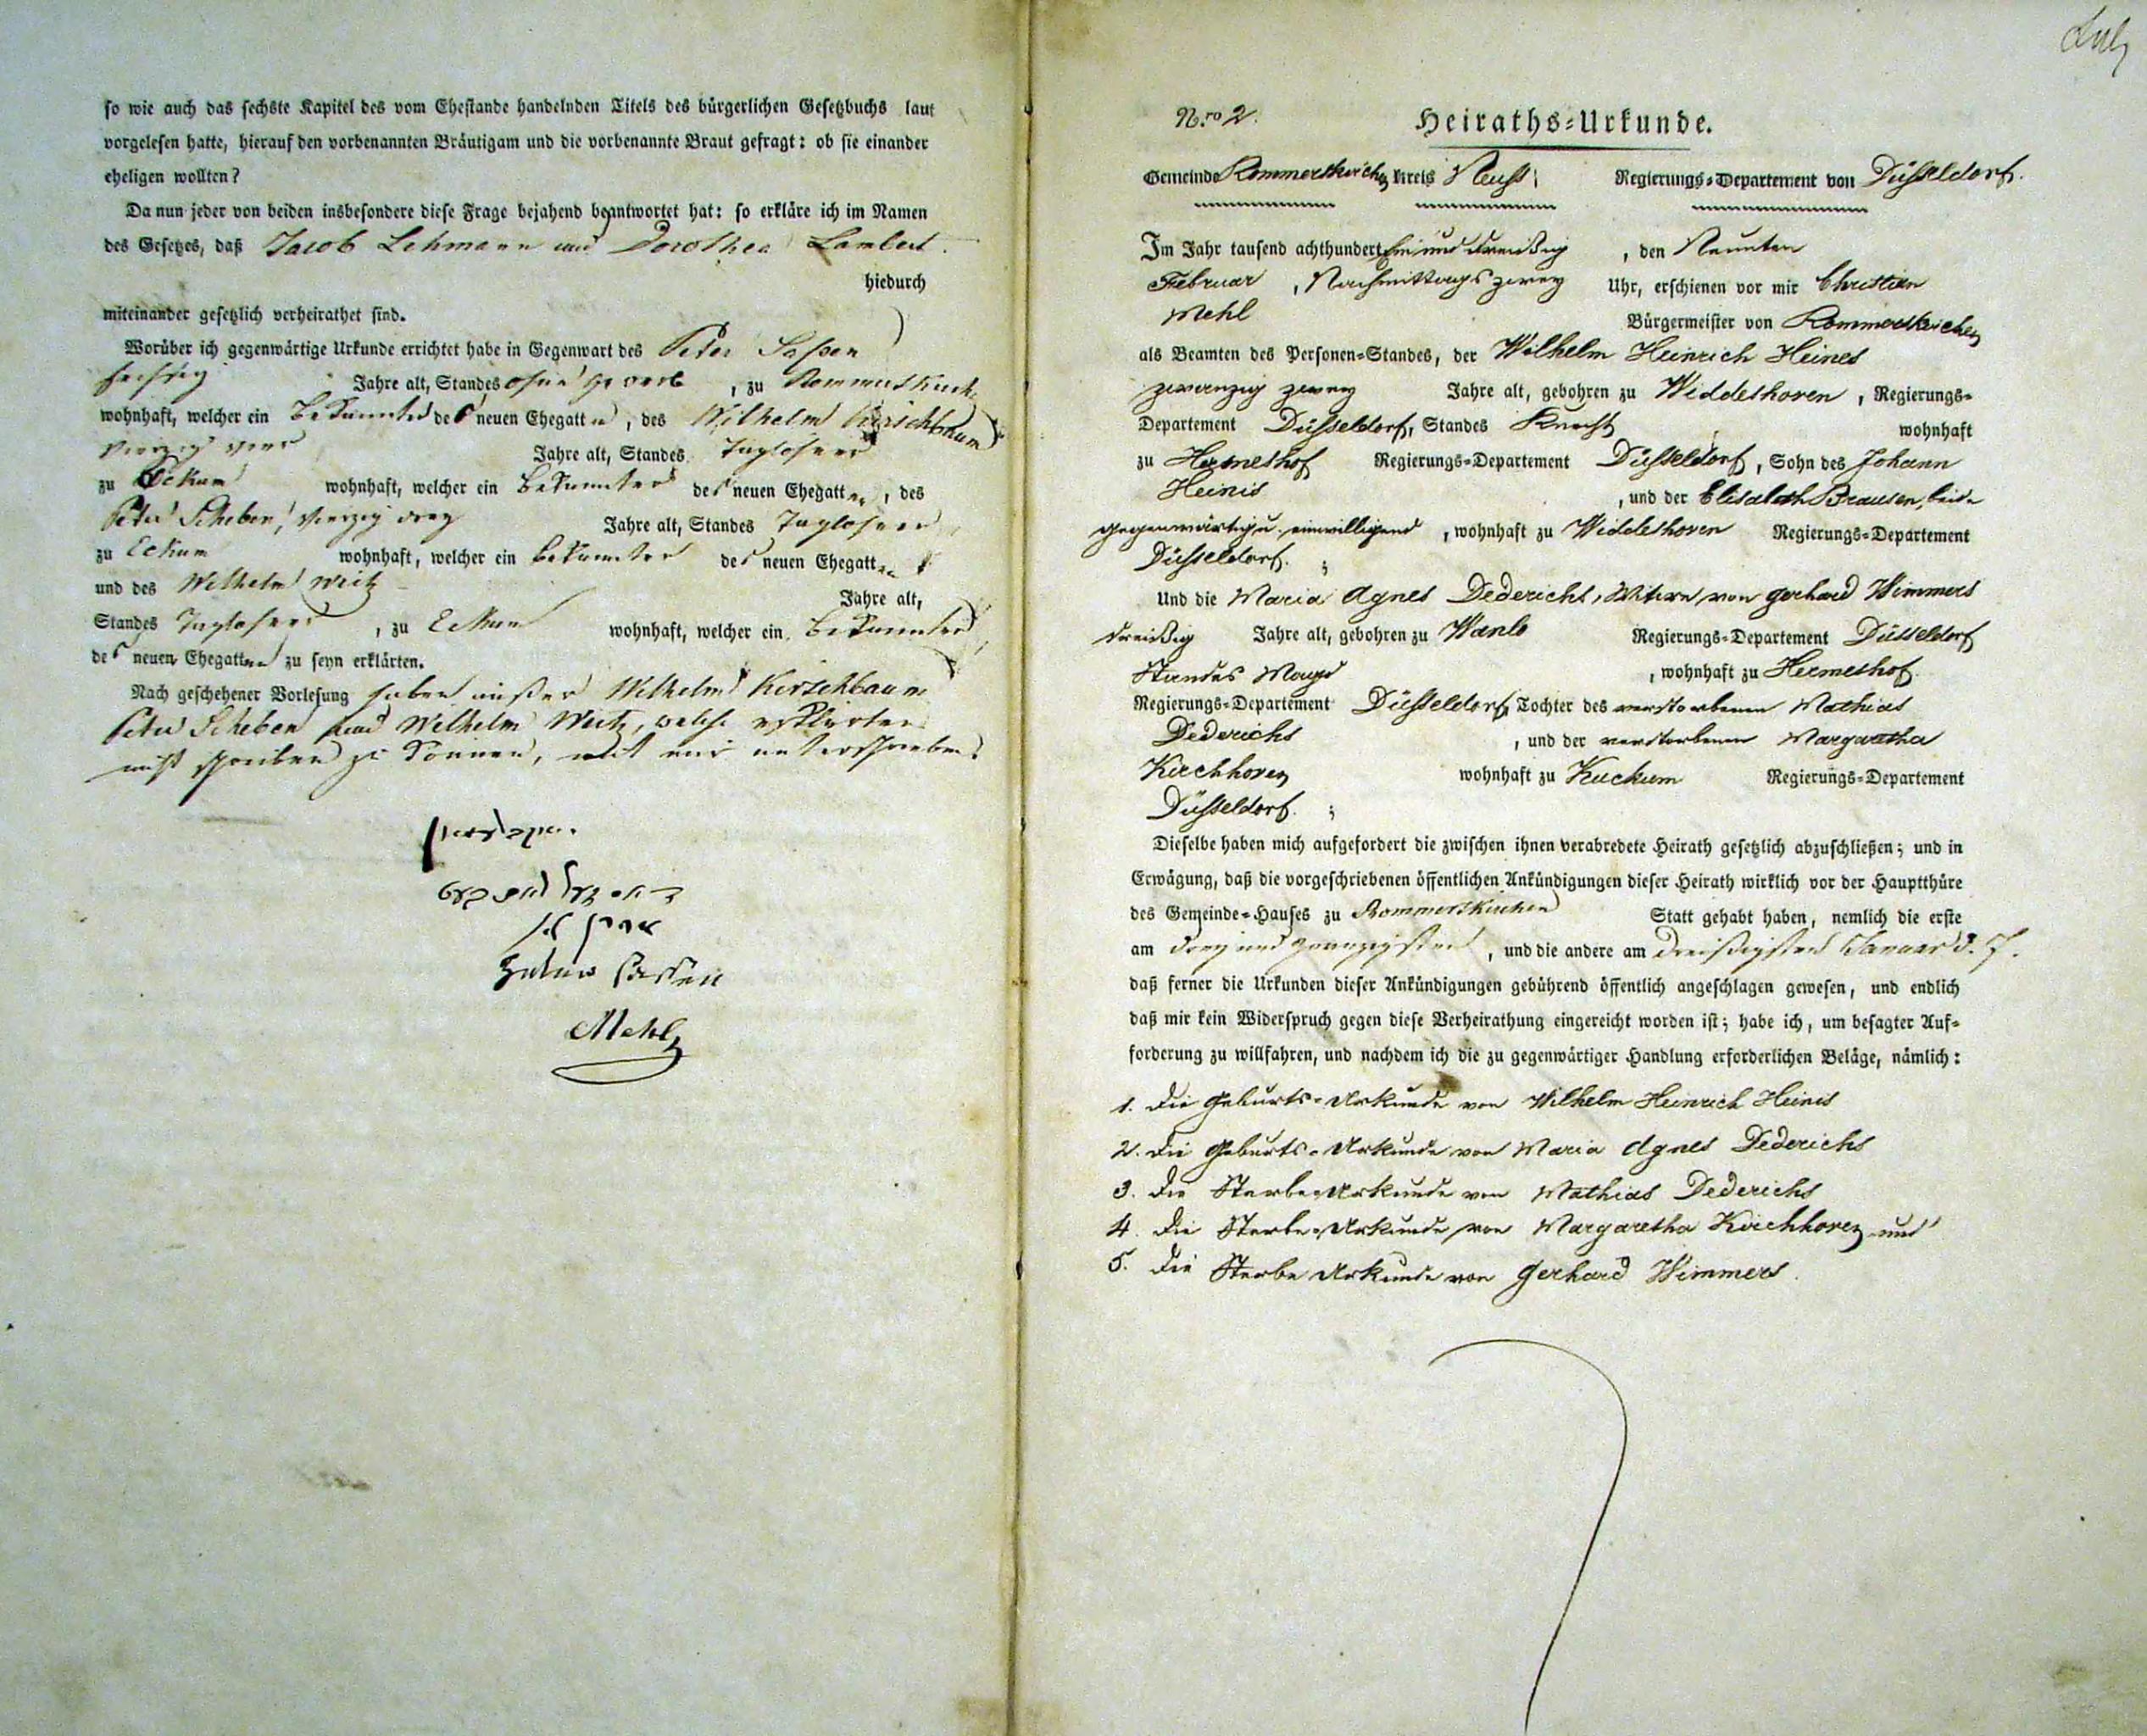 so wie auch das sechste Kapitel des vom Ehestande handelnden Titels des bürgerlichen Gesetzbuchs laut
vorgelesen hatte, hierauf den vorbenannten Bräutigam und die vorbenannte Braut gefragt: ob sie einander
eheligen wollten?
Da nun jeder von beiden insbesondere diese Frage bejahend beantwortet hat: so erkläre ich im Namen
des Gesetzes, daß Jacob Lehmann und Dorothea Lambert
hiedurch
miteinander gesetzlich verheirathet sind.
Worüber ich gegenwärtige Urkunde errichtet habe in Gegenwart des Peter Saßen
sechszig Jahre alt, Standes ohne Gewerb, zu Rommerskirch.
wohnhaft, welcher ein Bekannter des neuen Ehegatten, des Wilhelm Kirschbaum
vierzig vier Jahre alt, Standes Taglöhner
zu Eckum wohnhaft, welcher ein Bekannter des neuen Ehegatten, des
Peter Scheben, vierzig drey Jahre alt, Standes Taglöhner
zu Eckum wohnhaft, welcher ein Bekannter des neuen Ehegatten
und des Wilhelm Weitz
Jahre alt,
Standes Taglöhner, zu Eckum wohnhaft, welcher ein Bekannter
des neuen Ehegatten zu seyn erklärten.
Nach geschehener Vorlesung haben außer Wilhelm Kirschbaum
Peter Scheben und Wilhelm Weitz, welche erklärten
nicht schreiben zu können, mit mir unterschrieben.
Mehl
Nro 2. Heiraths-Urkunde.
Gemeinde Rommerskirchen Kreis Neuss; Regierungs-Departement von Düsseldorf.
Im Jahr tausend achthundert Ein und dreißig, den Neunten
Februar, Nachmittags zwey Uhr, erschienen vor mir Christian
Mehl Bürgermeister von Rommerskirchen
als Beamten des Personen-Standes, der Wilhelm Heinrich Heines
zwanzig zwey Jahre alt, gebohren zu Widdeshoven, Regierungs-
Departement Düsseldorf, Standes Knecht wohnhaft
zu Hermeshof Regierungs-Departement Düsseldorf, Sohn des Johann
Heinis, und der Elisabeth Brausen, beide
gegenwärtig u. einwilligend, wohnhaft zu Widdeshoven Regierungs-Departement
Düsseldorf. ;
Und die Maria Agnes Dederichs, Witwe von Gerhard Wimmers
dreißig Jahre alt, gebohren zu Wanlo Regierungs-Departement Düsseldorf
Standes Magd, wohnhaft zu Hermeshof.
Regierungs-Departement Düsseldorf, Tochter des verstorbenen Mathias
Dederichs, und der verstorbenen Margaretha
Kirchhoven wohnhaft zu Kuckum Regierungs-Departement
Düsseldorf. ;
Dieselbe haben mich aufgefordert die zwischen ihnen verabredete Heirath gesetzlich abzuschließen; und in
Erwägung, daß die vorgeschriebenen öffentlichen Ankündigungen dieser Heirath wirklich vor der Hauptthüre
des Gemeinde-Hauses zu Rommerskirchen Statt gehabt haben, nemlich die erste
am drey und zwanzigsten, und die andere am dreißigsten Januar d. J.
daß ferner die Urkunden dieser Ankündigungen gebührend öffentlich angeschlagen gewesen, und endlich
daß mir kein Widerspruch gegen diese Verheirathung eingereicht worden ist; habe ich, um besagter Auf-
forderung zu willfahren, und nachdem ich die zu gegenwärtiger Handlung erforderlichen Beläge, nämlich:
1. die Geburts-Urkunde von Wilhelm Heinrich Heinis
2. die Geburts-Urkunde von Maria Agnes Dederichs
3. die Sterbe-Urkunde von Mathias Dederichs
4. die Sterbe-Urkunde von Margaretha Kirchhoven und
5. die Sterbe Urkunde von Gerhard Wimmers.